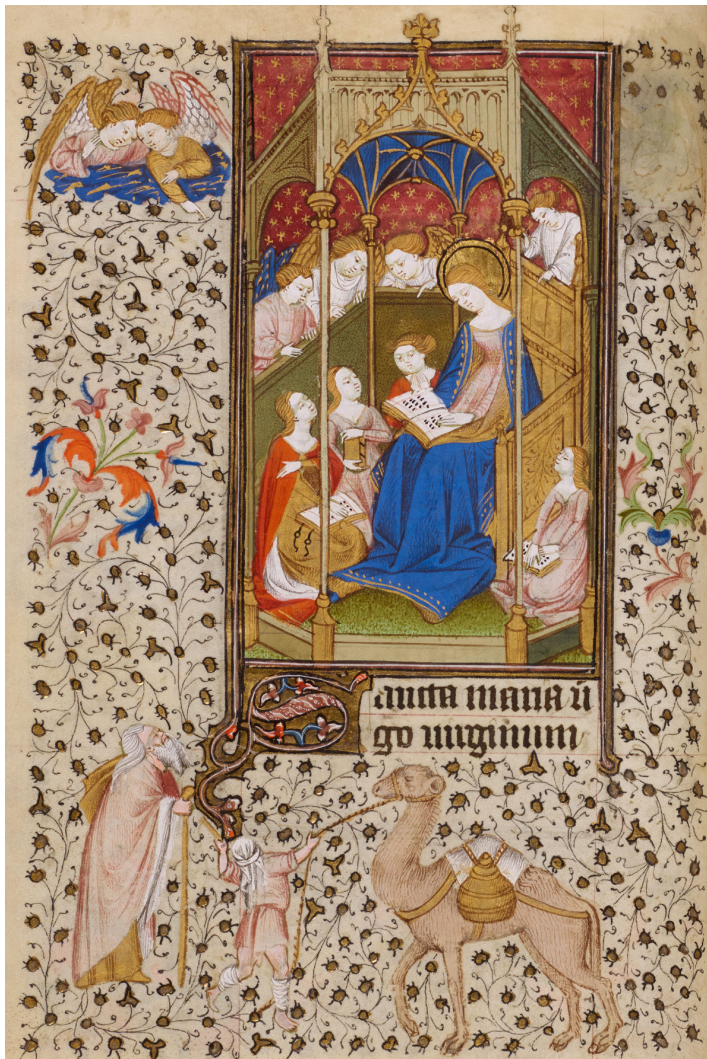 Sancta maria vi
go virginum